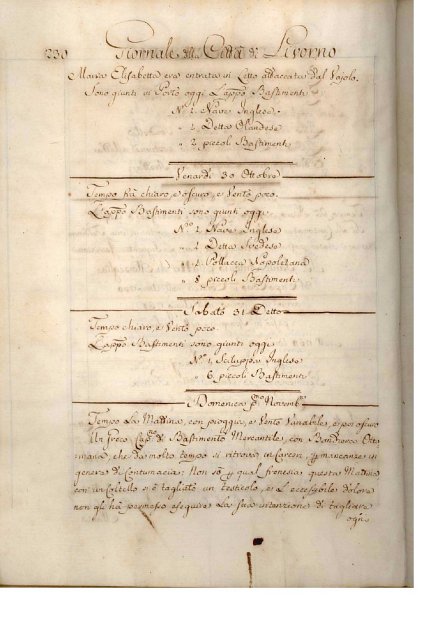 230 Giornale della Città di Livorno
Maria Elisabetta era entrata in Letto attaccata dal Vajolo.
Sono giunti in Porto oggi L'appo Bastimenti
N.º 1. Nave Inglese.
" 1. Detta Olandese
" 2. piccoli Bastimenti
Venardi 30 Ottobre
Tempo frà chiaro, e oscuro, e Vento poco.
L'appo Bastimenti sono giunti oggi
N.º 1. Nave Inglese
" 1. Detta Svedese
" 1. Pollacca Napoletana
" 8. piccoli Bastimenti
Sabato 31. Detto
Tempo chiaro, e Vento poco
L'appo Bastimenti sono giunti oggi
N.º 1. Scialuppa Inglese
" 6. piccoli Bastimenti
Domenica p.º Novemb.
Tempo La Mattina, con piogge, e Vento Variabile, e poi oscuro
Un Greco Cap.º di Bastimento Mercantile, con Bandiera Otto
mana, che da molto tempo si ritrova in Carceri, per mancanze in
genere di Contumacia. Non sò per qual frenesia questa Mattina
con un Coltello si è tagliato un testicolo, e L'eccessibile dolore
non gli hà permesso eseguire La sua intenzione di tagliare
ogn.